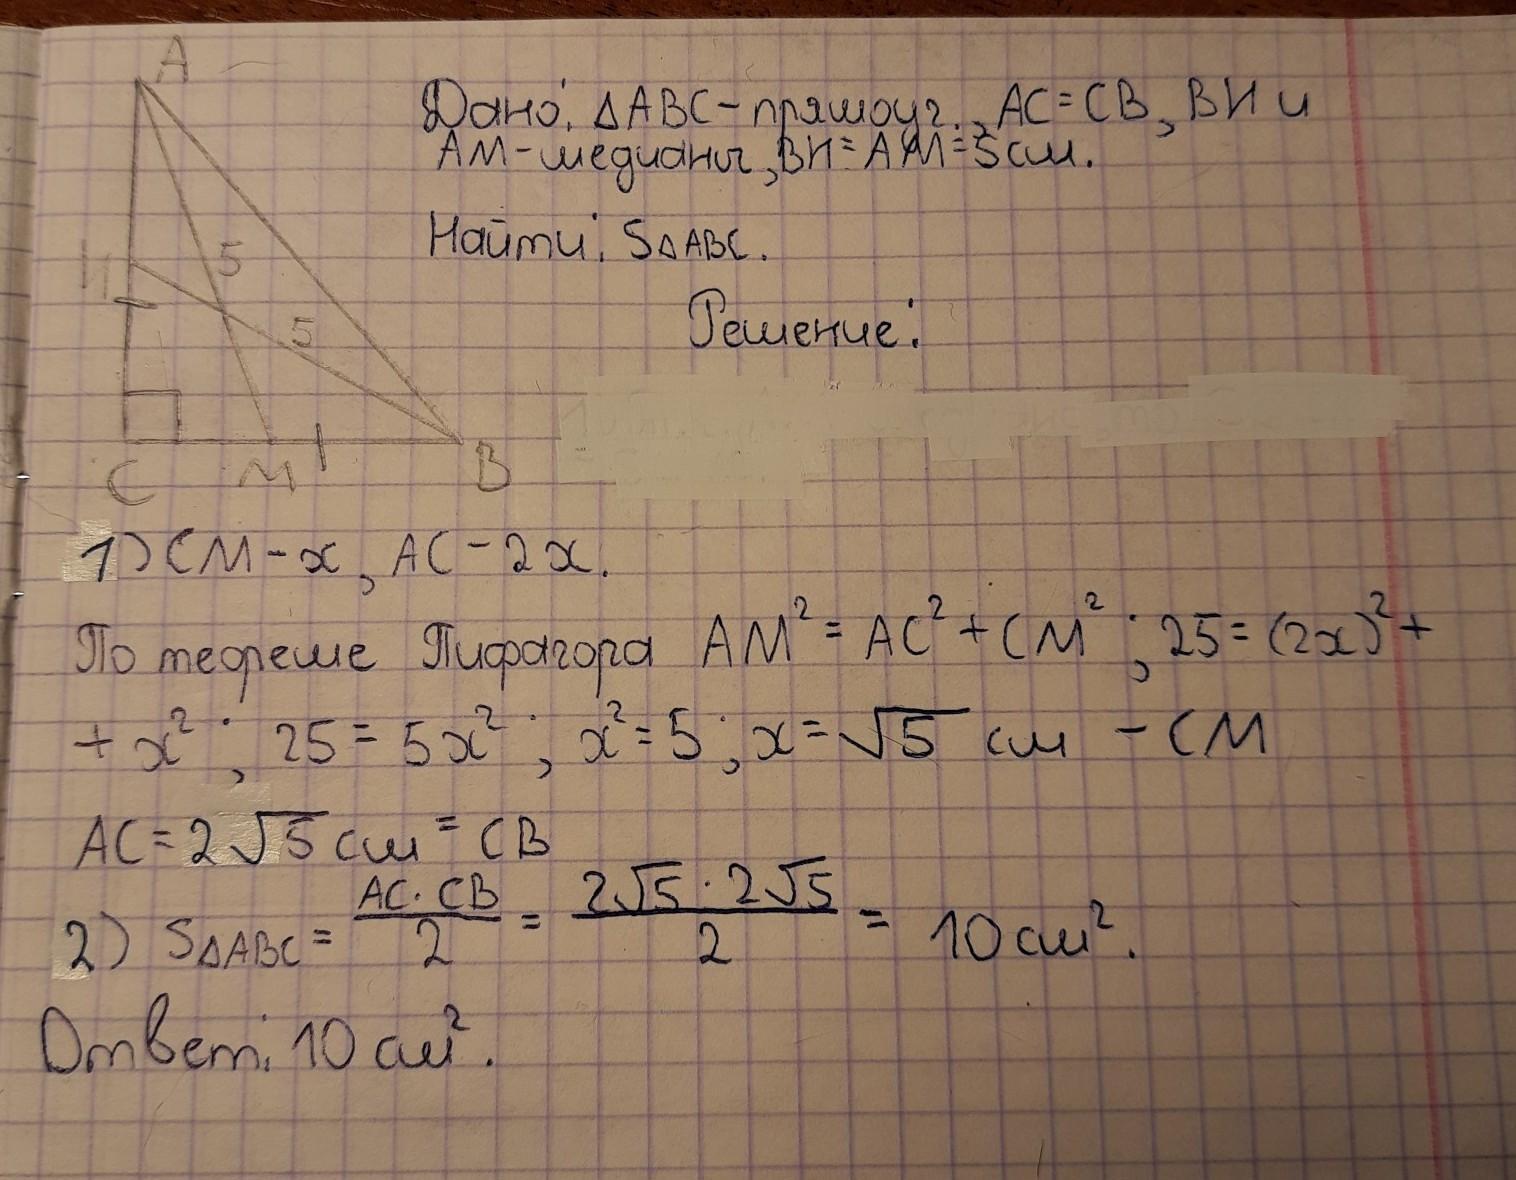 A
H
5
5
C
M
B
Дано: △ABC - прямоуг., AC = CB, BH и
AM - медианы, BH = AM = 5 см.
Найти: S△ABC.
Решение:
1) CM - x, AC - 2x.
По теореме Пифагора AM² = AC² + CM²; 25 = (2x)² +
+ x²; 25 = 5x²; x² = 5; x = √5 см - CM
AC = 2√5 см = CB
2) S△ABC = AC · CB / 2 = 2√5 · 2√5 / 2 = 10 см².
Ответ: 10 см².